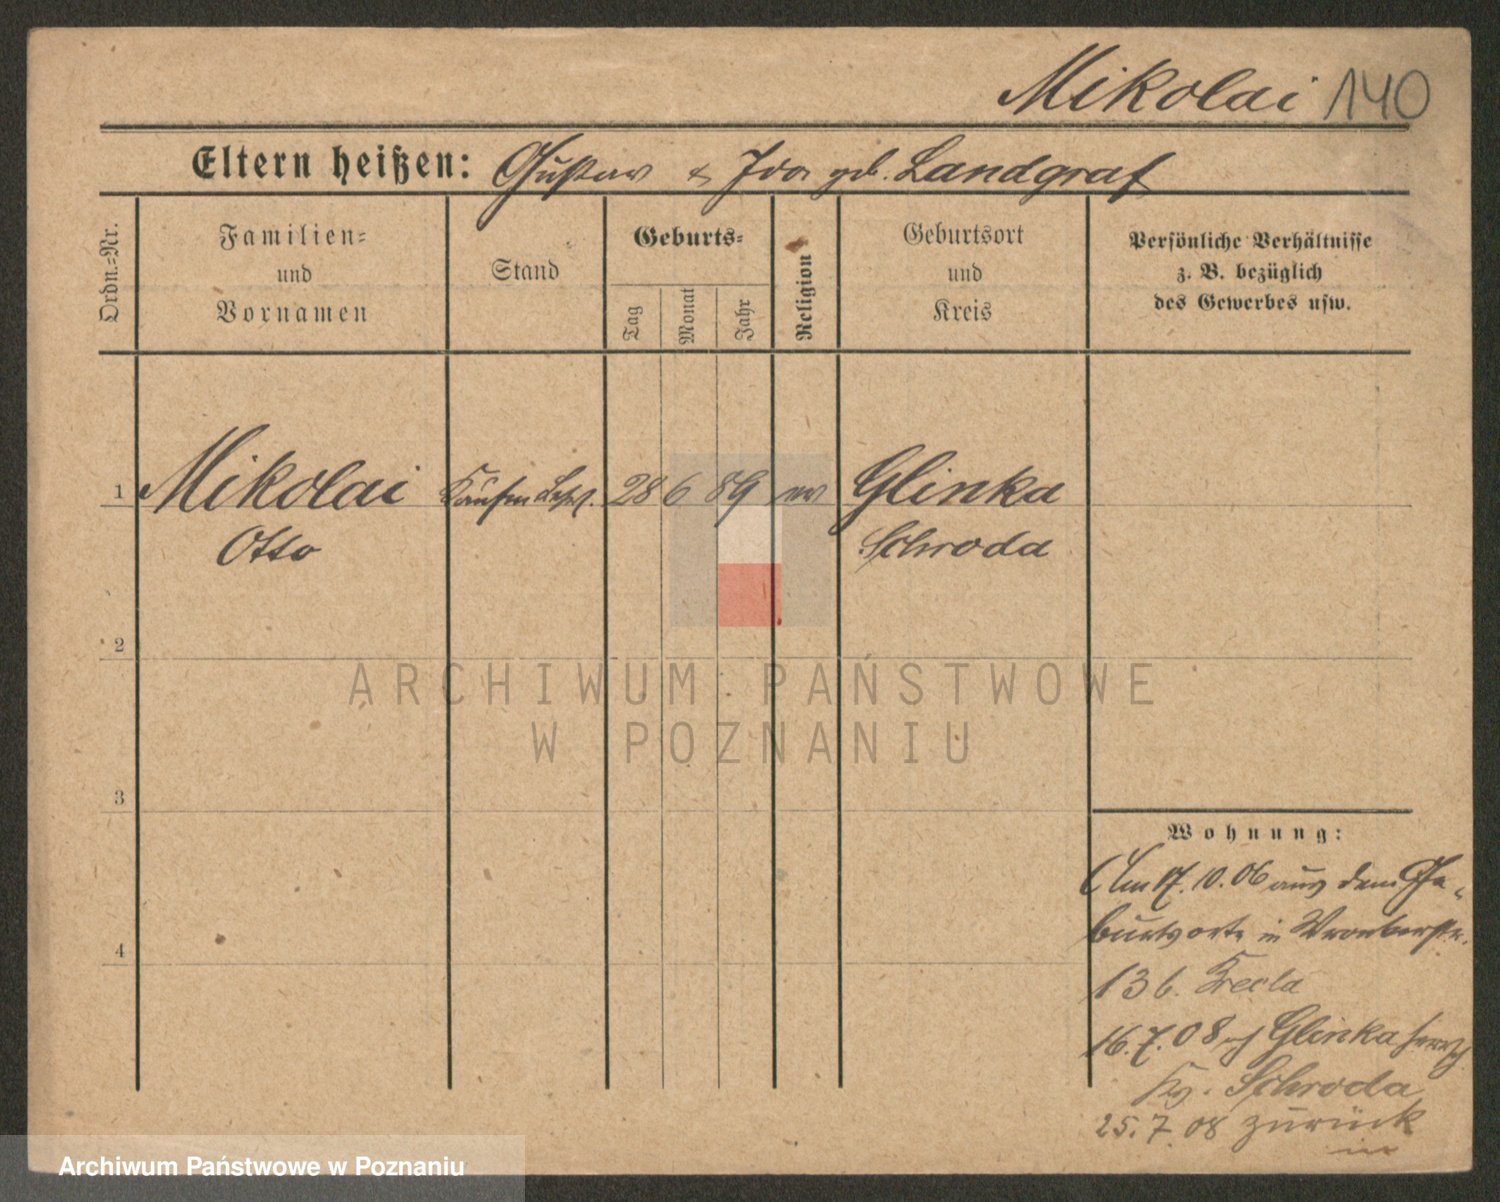 Mikolai 140
Eltern heißen: Gustav & Ida geb. Landgraf
Ordn.-Nr.
Familien-
und
Vornamen
Stand
Geburts-
Tag
Monat
Jahr
Religion
Geburtsort
und
Kreis
Persönliche Verhältnisse
z. B. bezüglich
des Gewerbes usw.
1 Mikolai 28 6 89 ev Glinka
Otto Schroda
2
3
4
Wohnung:
Am 17.10.06 aus dem Ge-
burtsorte in Wronkerstr.
13 b.
16.7.08 Glinka
Schroda
25.7.08 zurück
ARCHIWUM PAŃSTWOWE
W POZNANIU
Archiwum Państwowe w Poznaniu